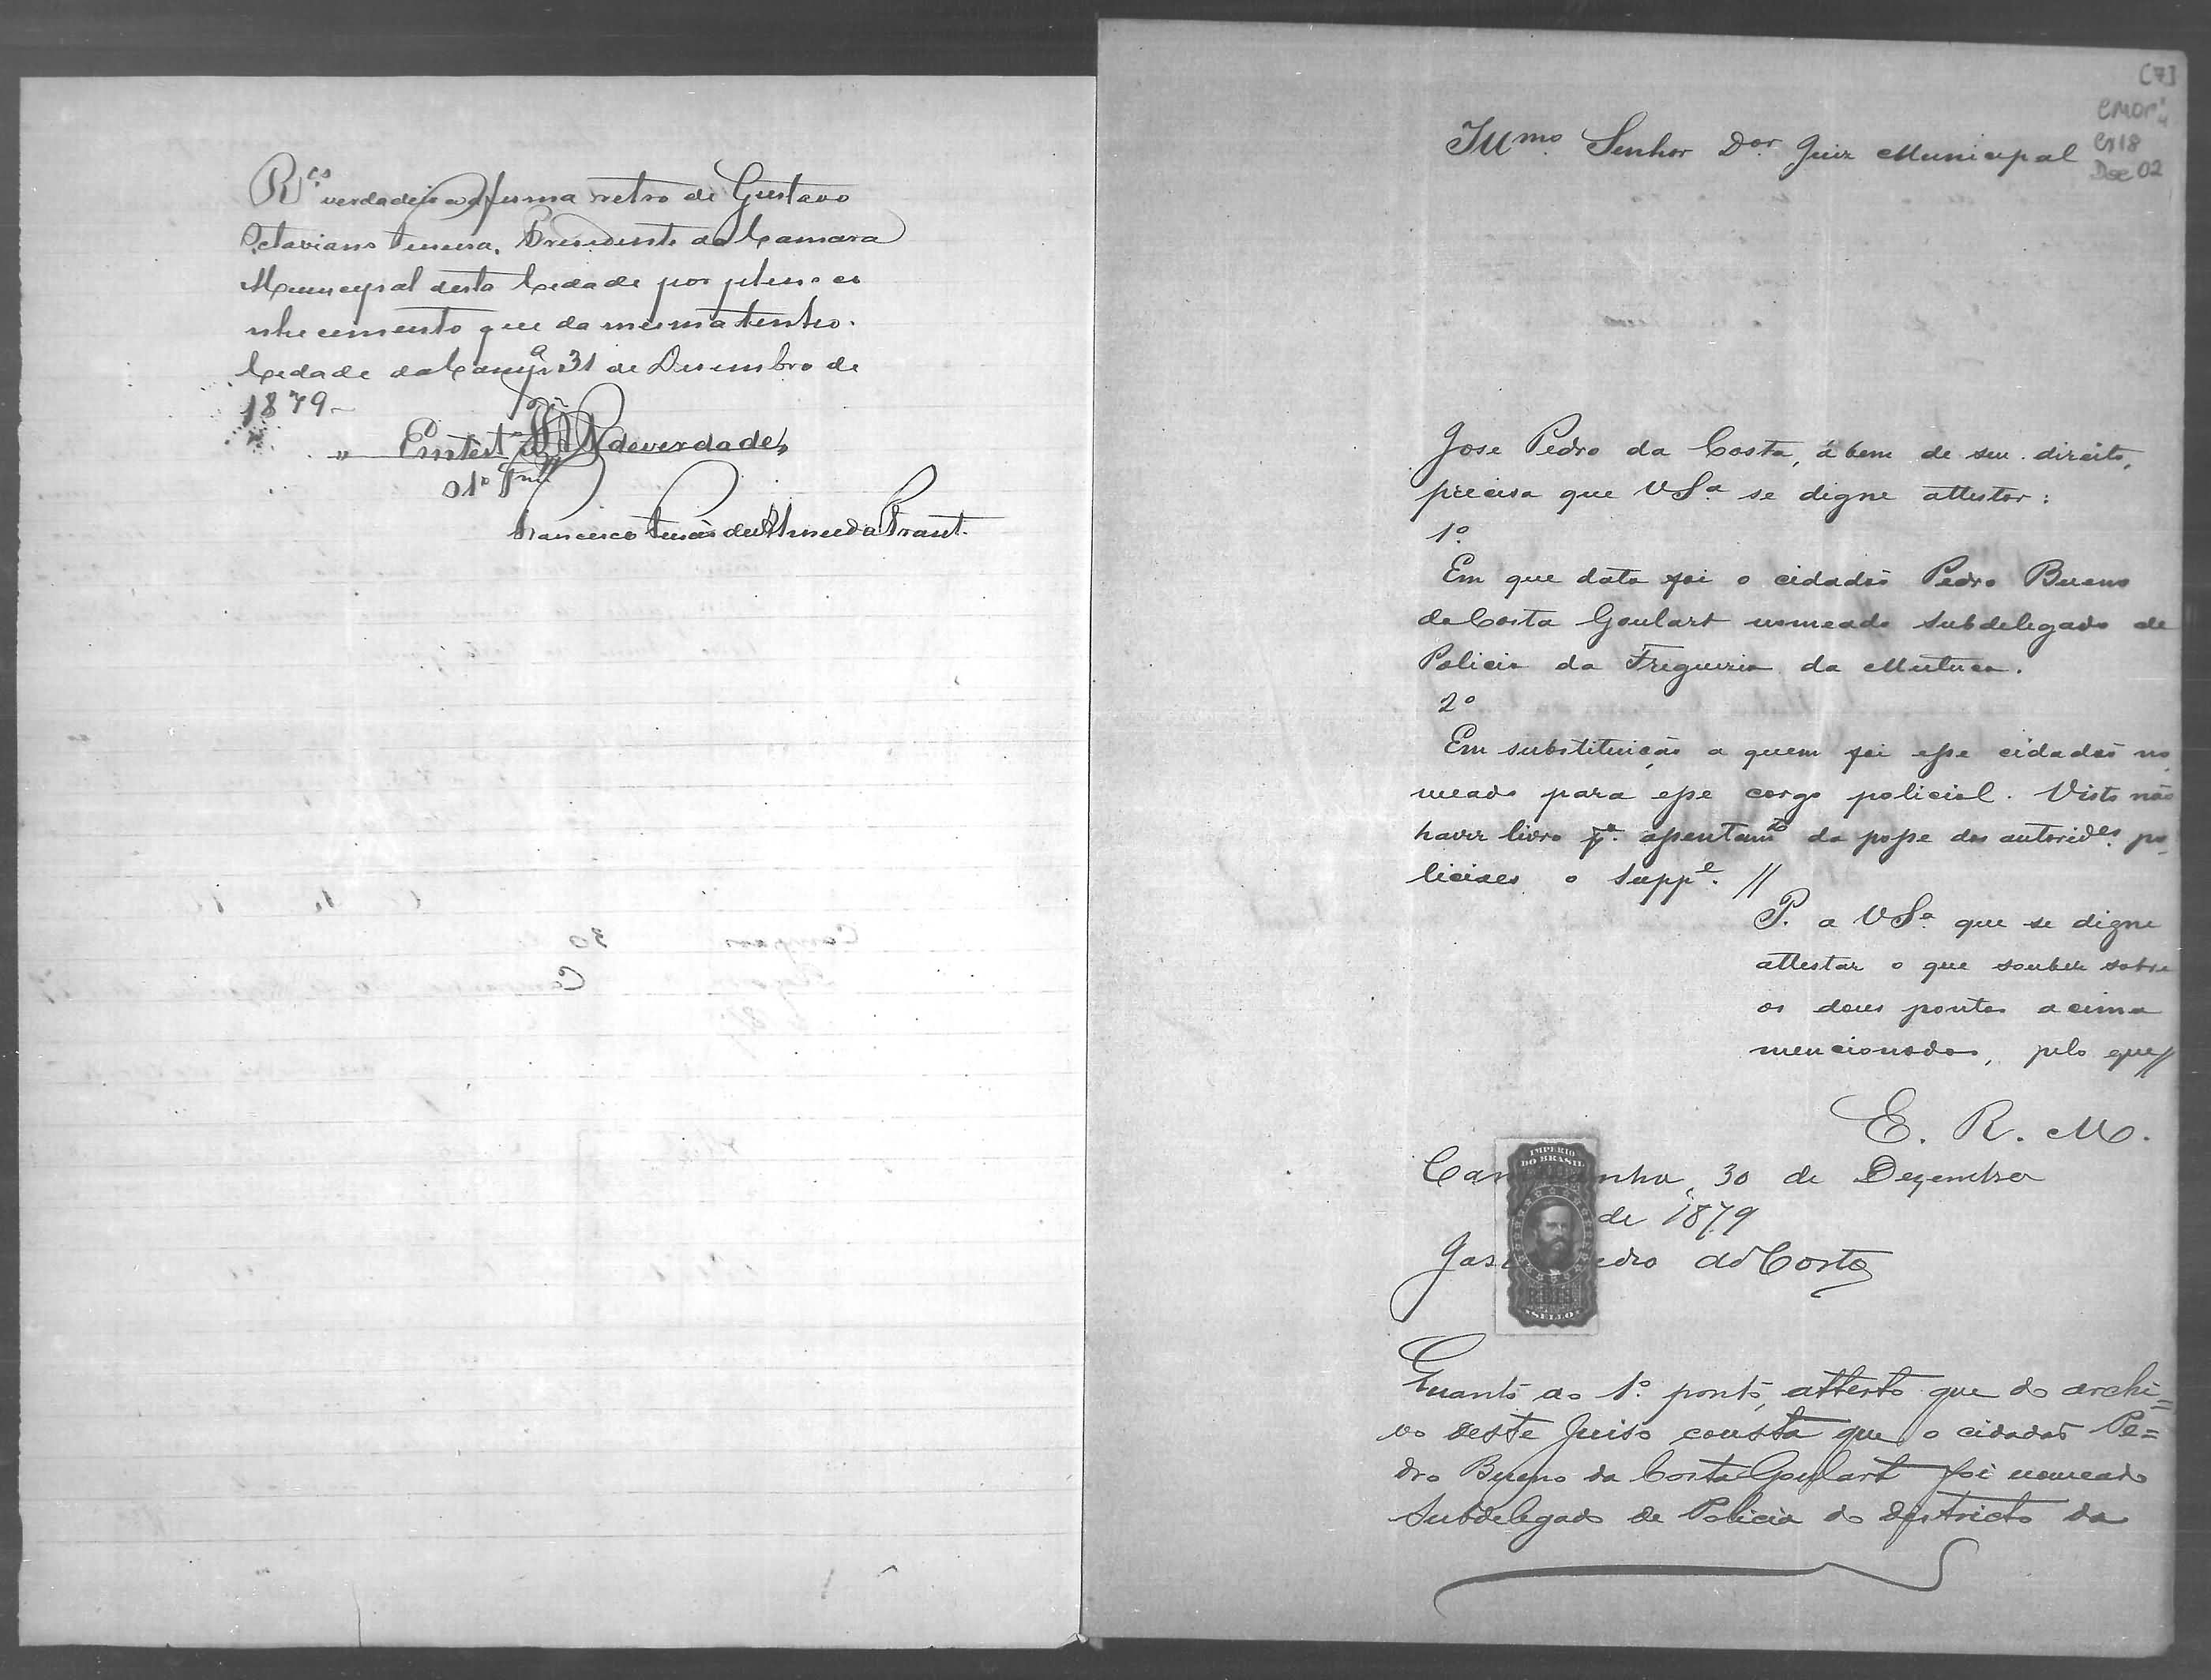 R.es verdadeira a firma retro de Gustavo
Octaviano Presidente da Camara
Municipal desta Cedade por pleno co
nhecimento que da mesma tenho.
Cedade da Campª 31 de Desembro de
1879
Em test de verdade
O 1º
Francisco de Almeida
[7]
Cx18
Doc 02
Illmo. Senhor Dor. Juiz Municipal
Jose Pedro da Costa, á bem de seu direito,
precisa que VSª se digne attestar:
1º.
Em que data foi o cidadão Pedro Bueno
da Costa Goulart nomeado Subdelegado de
Policia da Freguezia da Mutuca.
2º
Em substituição a quem foi esse cidadão no
meado para esse cargo policial. Visto não
haver livro pª. assentamto da posse das autorides. po
liciaes o Suppe. //
P. a VSª que se digne
attestar o que souber sobre
os dous pontos acima
mencionados, pelo que//
E. R. M.
Cam nha, 30 de Dezembro
de 1879
IMPERIO
DO BRASIL
SELLO
Jos edro da Costa
Quanto ao 1º. ponto, attesto que do archi=
vo deste Juiso consta que o cidadão Pe=
dro Bueno da Costa Goulart foi nomeado
Subdelegado de Policia do districto da